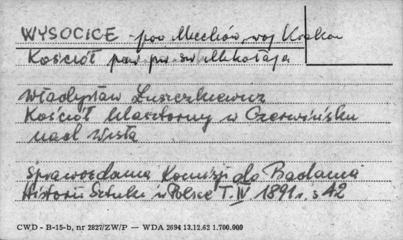 WYSOCICE pow Miechów, woj Kraków
Kościół par. p.w. św Mikołaja
Władysław Łuszczkiewicz
Kościół klasztorny w Czerwińsku
nad Wisłą
Sprawozdania Komisji do Badania
Historii Sztuki w Polsce T. IV 1891 r. s 42
CWD - B-15-b, nr 2827/ZW/P — WDA 2694 13.12.62 1.700.000